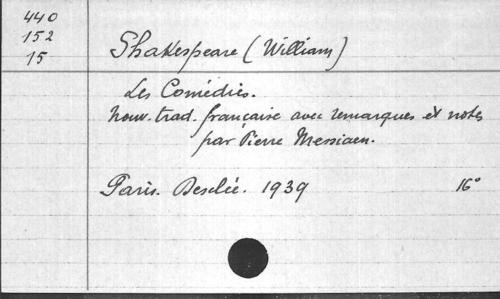 440
152
15
Shakespeare (William)
Les Comédies.
Nouv. trad. française avec remarques et notes
par Pierre Messiaen.
Paris. Desclée. 1939 16°